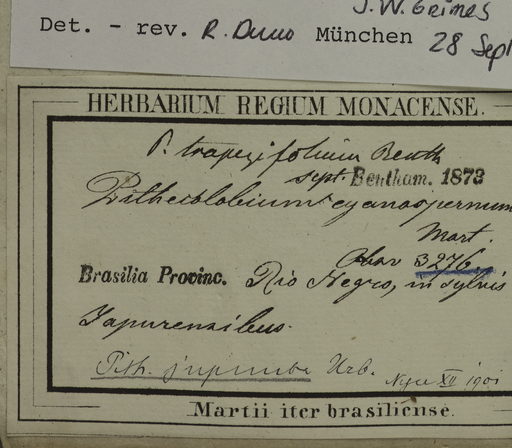 J.W. Grimes
Det. - rev. R. Duno München 28 Sept
HERBARIUM REGIUM MONACENSE.
P. trapezifolium Benth
sept. Bentham. 1873
Pithecolobium cyanospermum
Mart.
Obs 3276
Brasilia Provinc. Rio Negro, in sylvis
Japurensibus.
Pith. jupunba Urb.
XII 1901
Martii iter brasiliense.